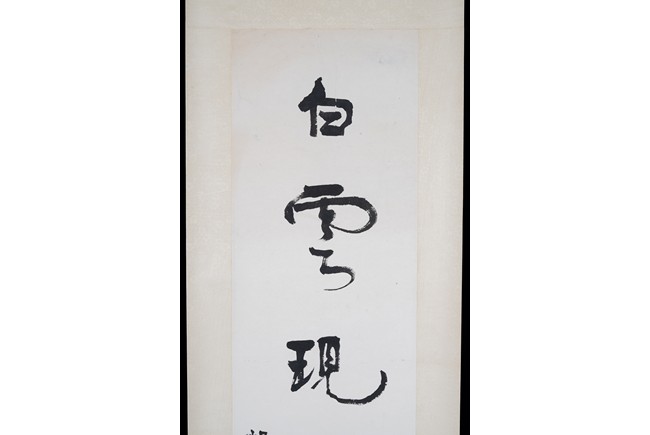 白雲現